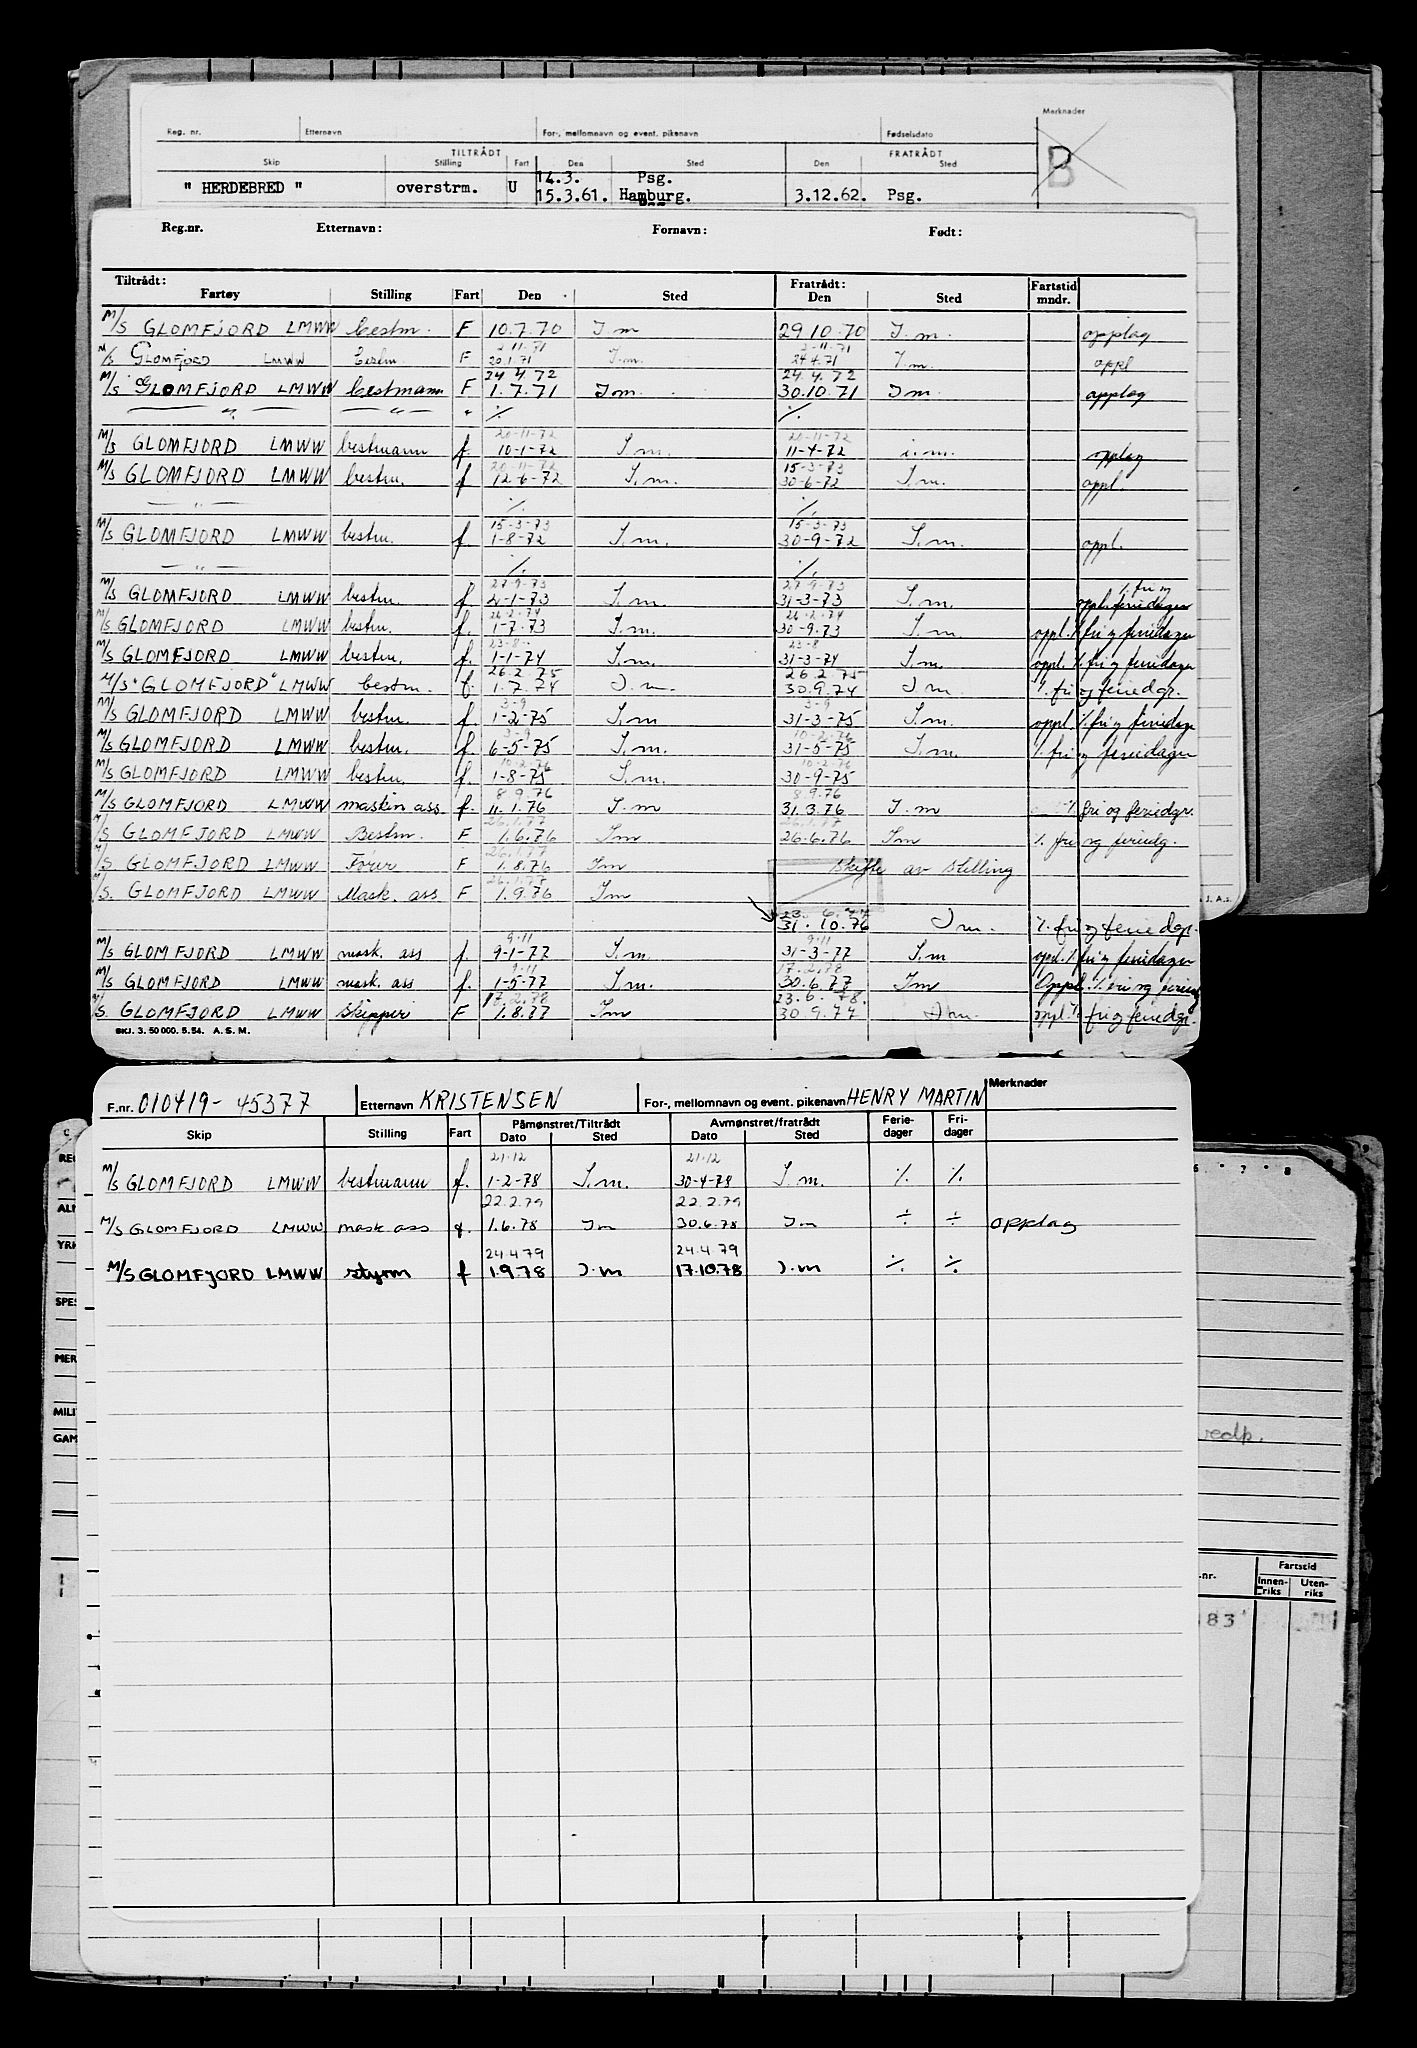 Merknader
Reg. nr. Etternavn For-, mellomnavn og event. pikenavn Fødselsdato
TILTRÅDT FRATRÅDT
Skip Stilling Fart Den Sted Den Sted
B
14.3. Psg.
" HERDEBRED " overstrm. U 15.3.61. Hamburg. 3.12.62. Psg.
Reg.nr. Etternavn: Fornavn: Født:
Tiltrådt: Fratrådt: Fartstid
Fartøy Stilling Fart Den Sted Den Sted mndr.
M/S GLOMFJORD LMWW bestm. F 10.7.70 I.m 29.10.70 I.m. opplag
2-11-71 2-11-71
M/S GLOMFJORD LMWW bestm. F 20.1.71 I.m. 24.4.71 I.m. oppl
24.4.72 24.4.72
M/S GLOMFJORD LMWW bestmann F 1.7.71 I.m. 30.10.71 I.m opplag
— " — — " — " ./. ./.
20-11-72 20-11-72
M/S GLOMFJORD LMWW bestmann f. 10-1-72 I.m. 11-4-72 i.m. opplag
20-11-72 15-3-73
M/S GLOMFJORD LMWW bestm. f 12-6-72 I.m. 30-6-72 I.m. oppl.
— " — ./. ./.
15-3-73 15-3-73
M/S GLOMFJORD LMWW bestm. f. 1-8-72 I.m. 30-9-72 I.m. oppl.
— " — ./. ./.
27-9-73 27-9-73 ./. fri og
M/S GLOMFJORD LMWW bestm. f. 2-1-73 I.m. 31-3-73 I.m. oppl. feriedager
26-2-74 26-2-74
M/S GLOMFJORD LMWW bestm. f. 1-7-73 I.m. 30-9-73 I.m oppl. ./. fri og feriedager
23-8- 23-8
M/S GLOMFJORD LMWW bestm. f. 1-1-74 I.m. 31-3-74 I.m. oppl. ./. fri og feriedager
26.2.75 26.2.75
M/S "GLOMFJORD" LMWW bestm. f. 1.7.74 I.m. 30.9.74 I m ./. fri og feriedgr.
3-9 3-9
M/S GLOMFJORD LMWW bestm. f. 1-2-75 I.m 31-3-75 I.m. oppl. ./. fri og feriedager
3-9 10-2-76
M/S GLOMFJORD LMWW bestm. f 6-5-75 I.m. 31-5-75 I.m. ./. fri og feriedager
10-2-76 10-2-76
M/S GLOMFJORD LMWW bestm. f. 1-8-75 I.m. 30-9-75
8.9.76 8.9.76
M/S GLOMFJORD LMWW maskin ass. f. 11.1.76 I.m 31.3.76 I.m ./. fri og feriedgr.
26.1.77 26.1.77
M/S GLOMFJORD LMWW Bestm. F 1.6.76 Im 26.6.76 Im ./. fri og feriedg.
26.1.77
M/S. GLOMFJORD LMWW Fører F 1.8.76 Im skifte av stilling
26.1.77
M/S. GLOMFJORD LMWW Mask. ass F 1.9.76 Im
23. 6. 77
31.10.76 I m. ./. fri og feriedgr.
9-11 9-11
M/S GLOMFJORD LMWW mask. ass f. 9-1-77 I.m. 31-3-77 I.m oppl. ./. fri og feriedager
9-11 17.2.78
M/S GLOMFJORD LMWW mask. ass f. 1-5-77 I.m. 30.6.77 Im Oppl. ./. fri og feriedg
17.2.78 23.6.78.
M/S. GLOMFJORD LMWW Skipper F 1.8.77 Im 30.9.77 I m. oppl. ./. fri og feriedgr.
SKJ. 3. 50 000. 5. 54. A. S. M.
J. A.s.
F.nr. 010419-45377 Etternavn KRISTENSEN For-, mellomnavn og event. pikenavn HENRY MARTIN Merknader
Skip Stilling Fart Påmønstret/Tiltrådt Avmønstret/fratrådt Ferie- Fri-
Dato Sted Dato Sted dager dager
21.12 21.12
M/S GLOMFJORD LMWW bestmann f. 1-2-78 I.m. 30-4-78 I.m. ./. ./.
22.2.79 22.2.79
M/S GLOMFJORD LMWW mask ass f. 1.6.78 Im 30.6.78 Im ÷ ÷ opplag
24.4.79 24.4.79
M/S GLOMFJORD LMWW styrm f 1.9.78 I.m 17.10.78 I.m ./. ./.
YRK
SPES
MER
MILI
GAM
Fartstid
.nr. Innen- Uten-
riks riks
83